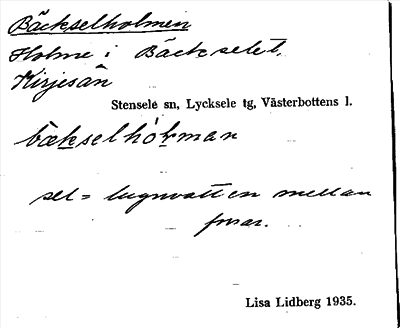 Bäckselholmen
Holme i Bäckselet,
Kirjesån
Stensele sn, Lycksele tg, Västerbottens l.
bækselhòlman
sel = lugnvatten mellan
forsar.
Lisa Lidberg 1935.